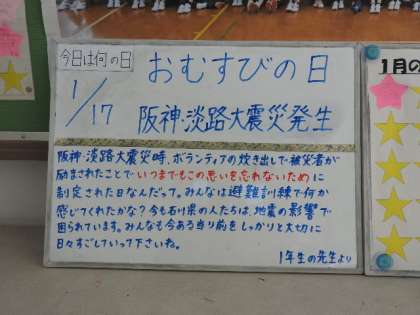 今日は何の日
おむすびの日
1/17
阪神・淡路大震災発生
阪神・淡路大震災時、ボランティアの炊き出しで被災者が
励まされたことでいつまでもこの思いを忘れないために
制定された日なんだって。みんなは避難訓練で何か
感じてくれたかな？今も石川県の人たちは、地震の影響で
困られています。みんなも今ある当り前をしっかりと大切に
日々すごしていって下さいね。
1年生の先生より
1月の